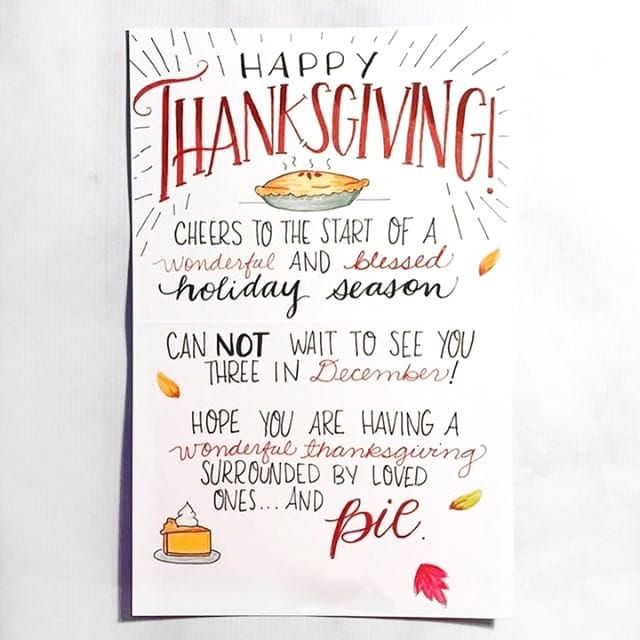 HAPPY
THANKSGIVING!
CHEERS TO THE START OF A
wonderful AND blessed
holiday season
CAN NOT WAIT TO SEE YOU
THREE IN December!
HOPE YOU ARE HAVING A
wonderful thanksgiving
SURROUNDED BY LOVED
ONES... AND pie.